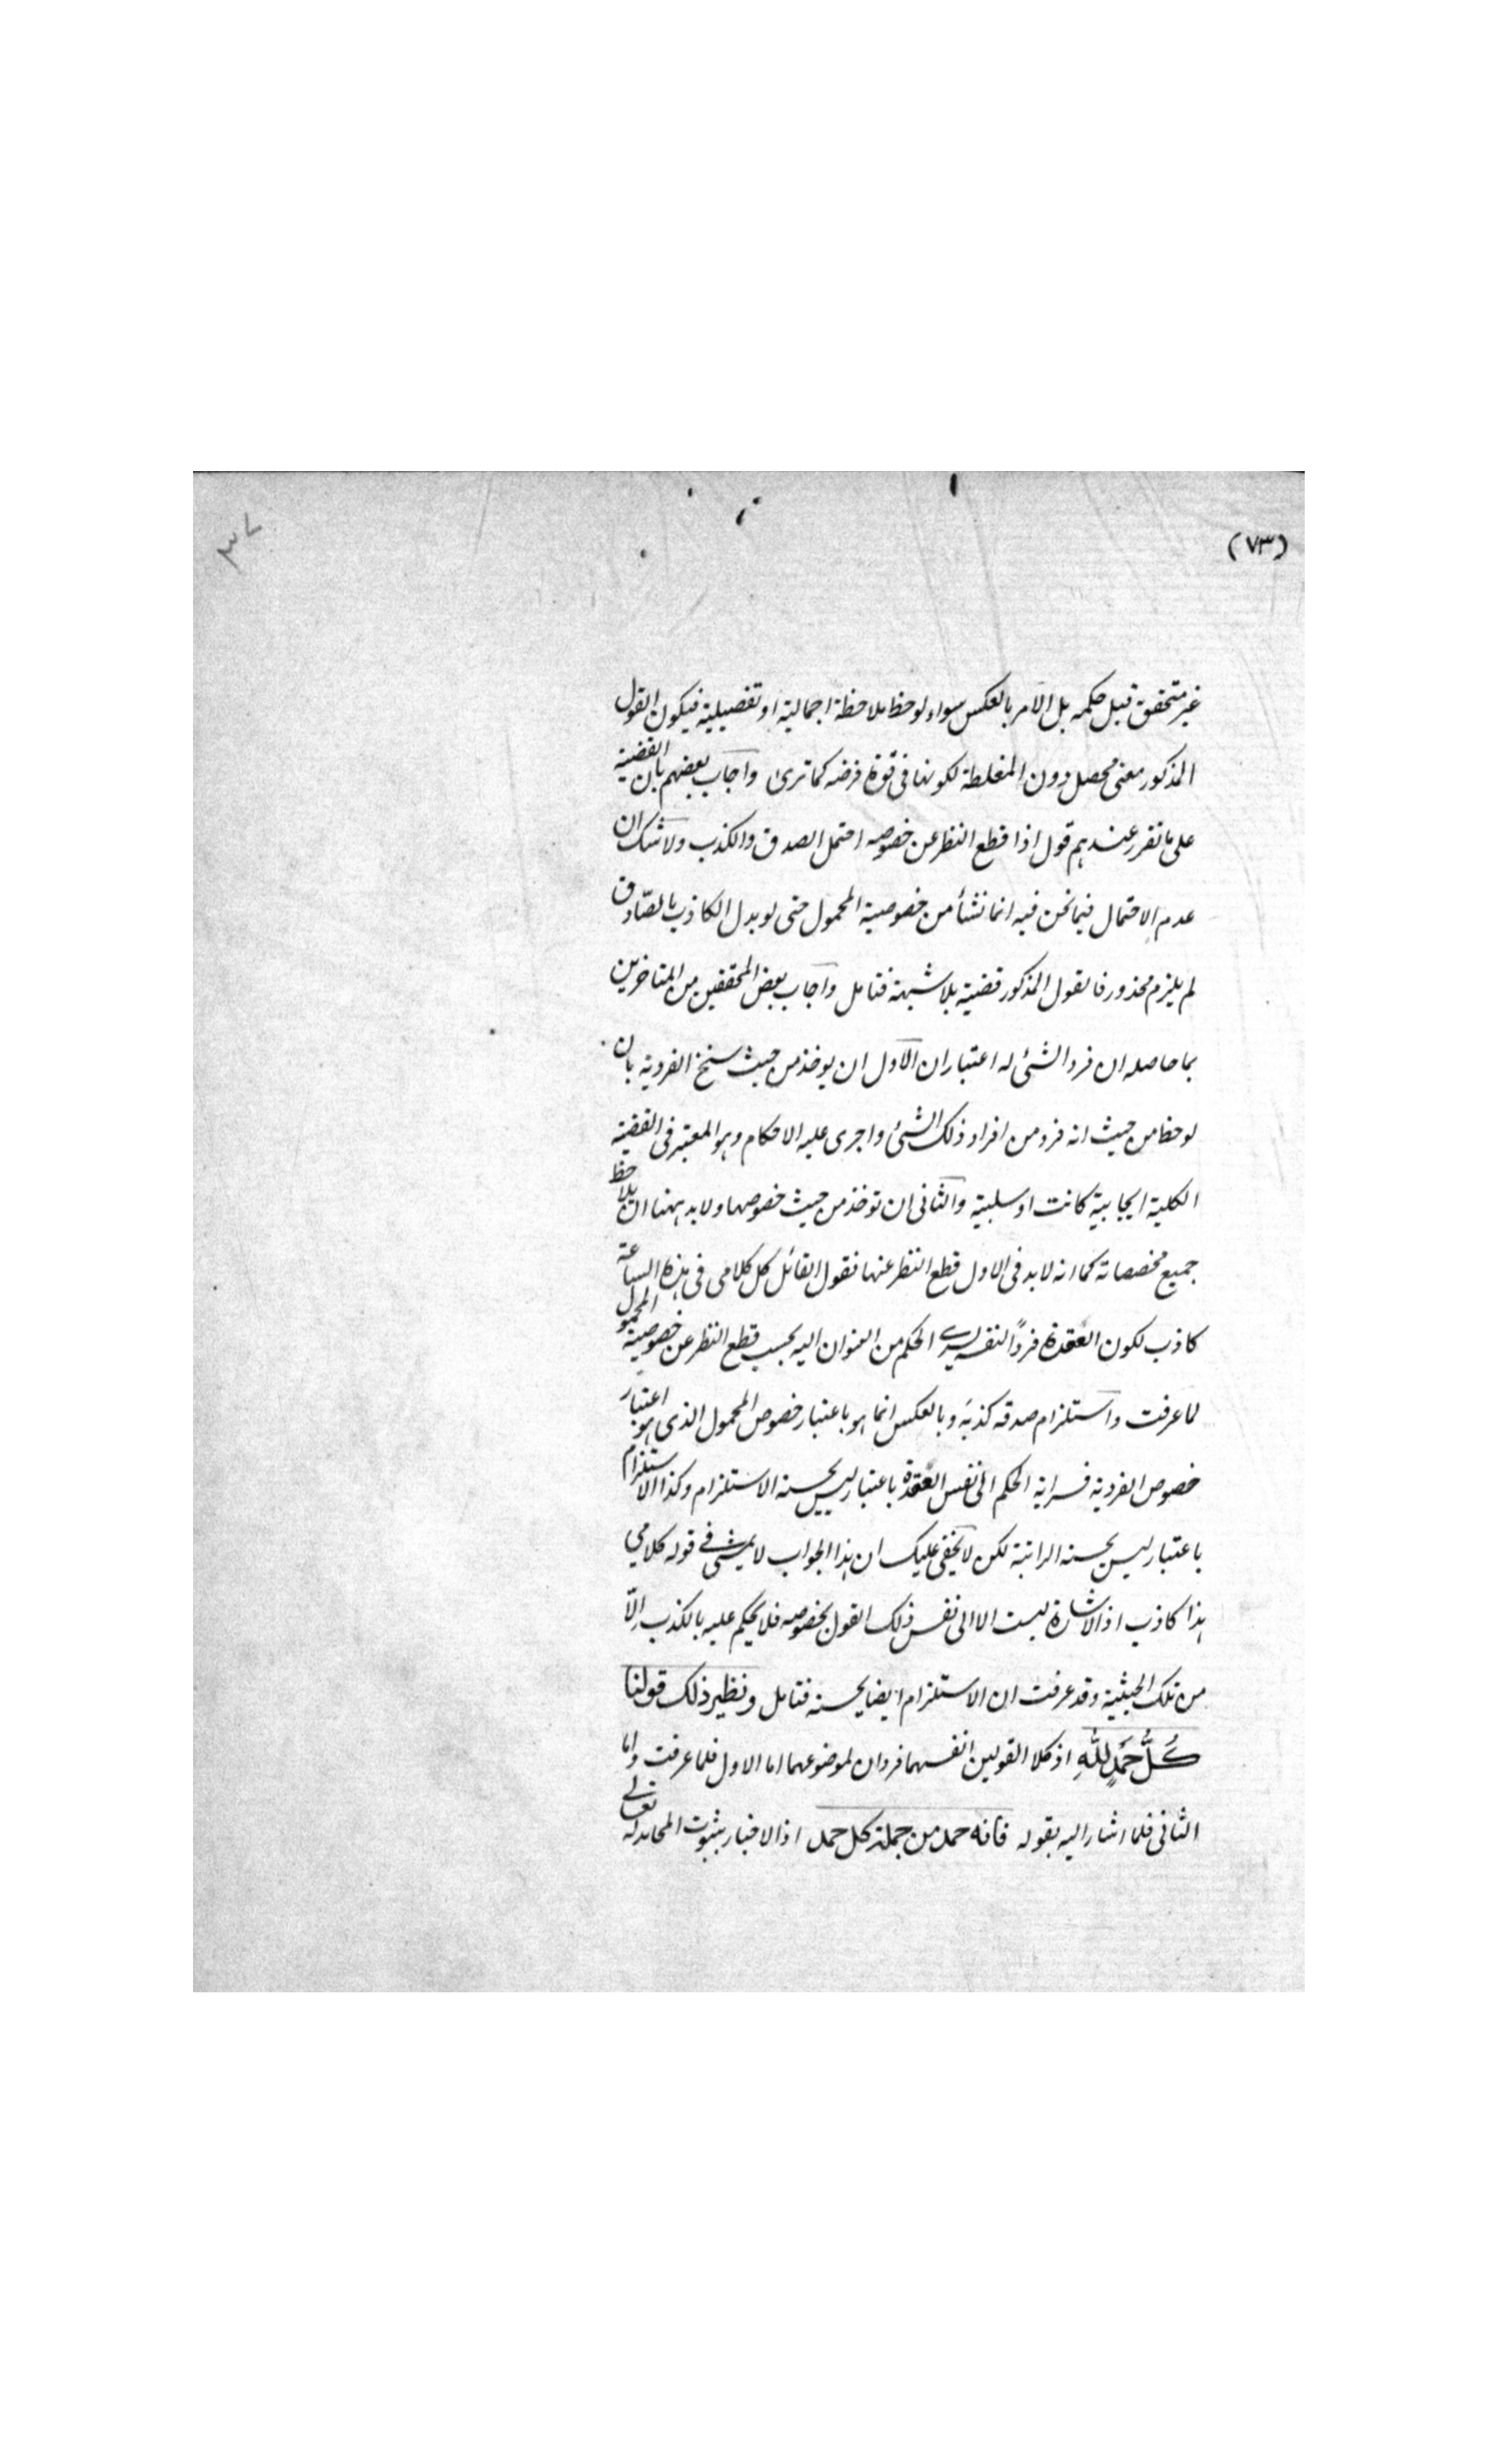 (٧٣)
٣٧
غير متحقق قبل حكمه بل الامر بالعكس سواء لوحظ ملاحظة اجمالية او تفصيلية فيكون القول
المذكور معنى محصل دون المغلطة لكونها فى قوة فرضه كما ترى واجاب بعضهم بان القضية
على ما تقرر عندهم قول اذا قطع النظر عن خصوصه احتمل الصدق والكذب ولا شك ان
عدم الاحتمال فيما نحن فيه انما نشأ من خصوصية المحمول حتى لو بدل الكاذب بالصّادق
لم يلزم محذور فالقول المذكور قضية بلا شبهة فتامل واجاب بعض المحققين من المتاخرين
بما حاصله ان فرد الشئ له اعتباران الاول ان يوخذ من حيث سنخ الفردية بان
لوحظ من حيث انه فرد من افراد ذلك الشئ واجرى عليه الاحكام وهو المعتبر فى القضية
الكلية ايجابية كانت او سلبية والثانى ان توخذ من حيث خصوصها ولا بد ههنا ان يلاحظ
جميع مخصصاته كما انه لا بد فى الاول قطع النظر عنها فقول القائل كل كلامى فى هذه الساعة
كاذب لكون العقدة فردًا لنفسه يسرى الحكم من العنوان اليه بحسب قطع النظر عن خصوصية المحمول
لما عرفت واستلزام صدقه كذبه وبالعكس انما هو باعتبار خصوص المحمول الذى هو اعتبار
خصوص الفردية فسراية الحكم الى نفس العقدة باعتبار ليس بحسنه الاستلزام وكذا الاستلزام
باعتبار ليس بحسنه السراية لكن لا يخفى عليك ان هذا الجواب لا يمشى فى قوله كلامي
هذا كاذب اذ الاشارة ليست الا الى نفس ذلك القول بخصوصه فلا يحكم عليه بالكذب الّا
من تلك الحيثية وقد عرفت ان الاستلزام ايضا بحسنه فتامل ونظير ذلك قولنا
كُلُّ حَمْدٍ لِلّٰهِ اذ كلا القولين انفسهما فردان لموضوعهما اما الاول فلما عرفت واما
الثانى فلما اشار اليه بقوله فانه حمد من جملة كل حمد اذ الاخبار بثبوت المحامد له تعالى